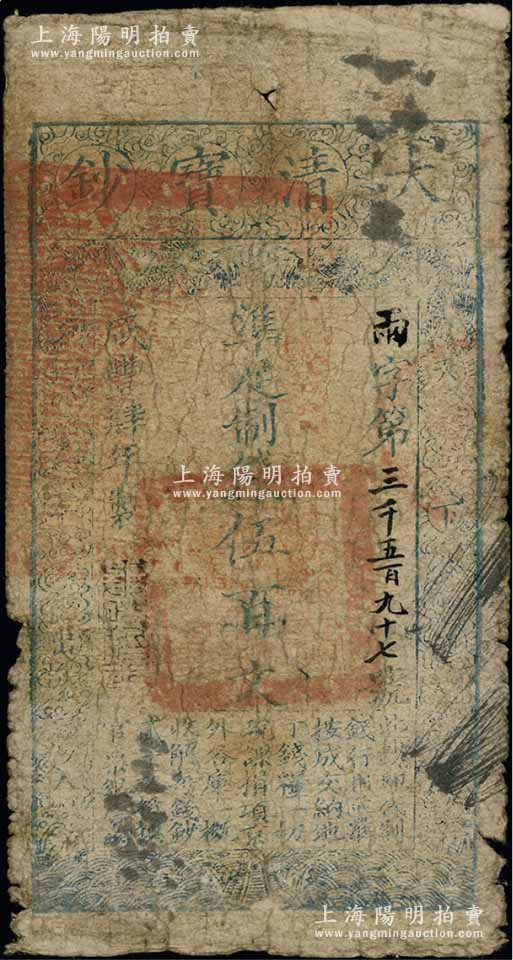 上海陽明拍賣
www.yangmingauction.com
大清寶鈔
雨字第三千五百九十七號
準足制錢伍百文
咸豐肆年製
此鈔即代制
錢行用並准
按成交納地
丁錢糧一切
稅課捐項京
外各庫一概
收解每錢鈔
貳千文抵換
官票銀壹
天下
上海陽明拍賣
www.yangmingauction.com
上海陽明拍賣
www.yangmingauction.com